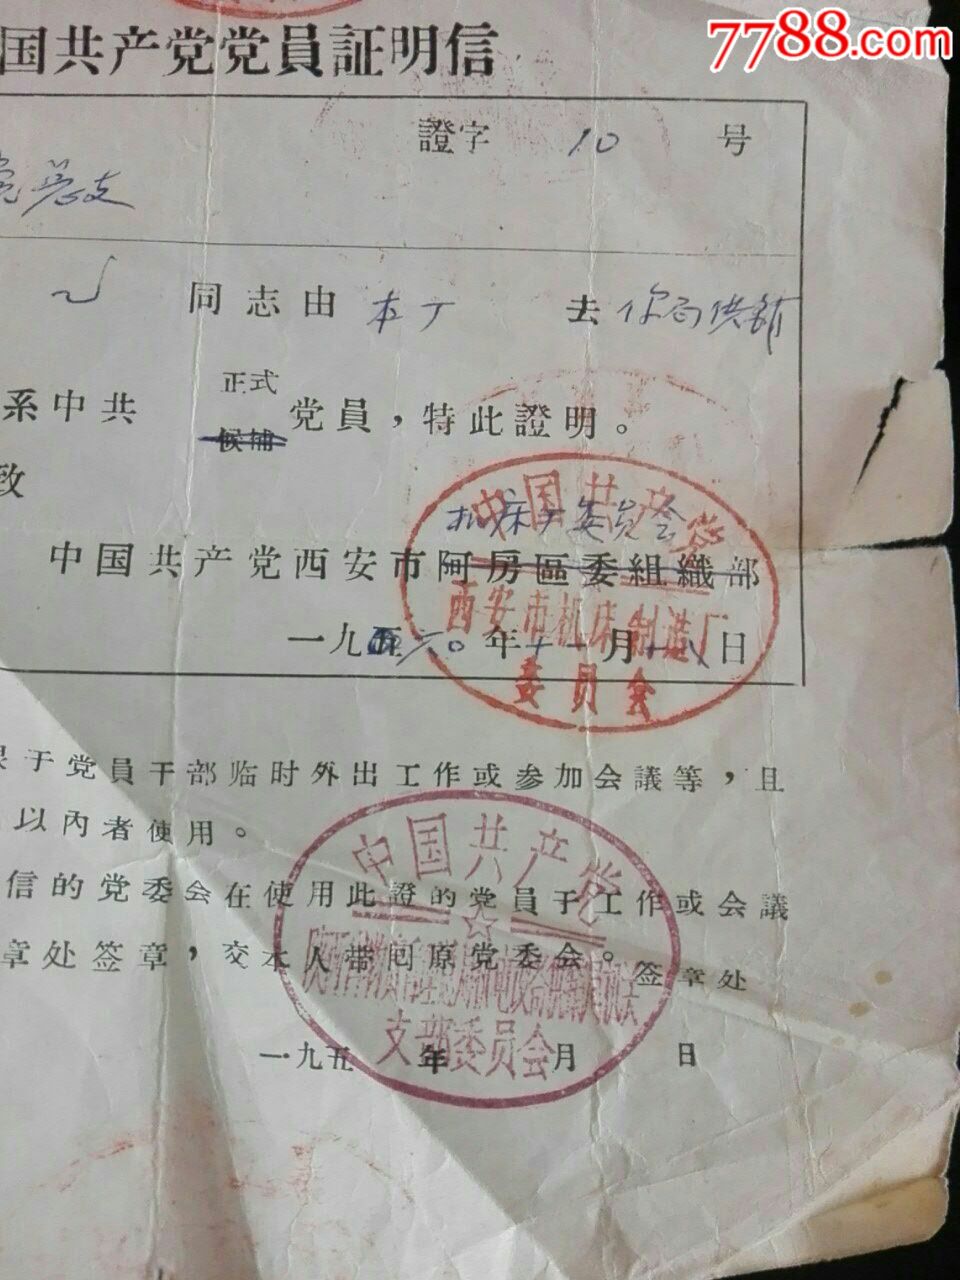 7788.com
国共产党党員証明信
證字 10 号
党总支
同志由 本厂 去 你局供銷
系中共 正式 候補 党員，特此證明。
致
机床厂委员会
中国共产党西安市阿房區委組織部
一九六〇年十一月十八日
中国共产党
西安市机床制造厂
委員会
于党員干部临时外出工作或参加会議等，且
以內者使用。
信的党委会在使用此證的党員于工作或会議
章处签章，交本人带回原党委会。签章处
一九五 年 月 日
中国共产党
支部委員会